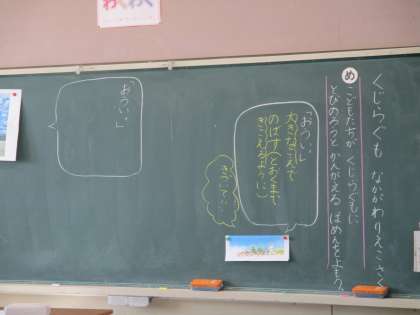 わくわく
くじらぐも なかがわりえこ さく
め こどもたちが くじらぐもに
とびのろうと かんがえる ばめんを よもう。
「おうい。」
大きなこえで
のばす(とおくまで
きこえるように)
きづいて…
「おうい。」